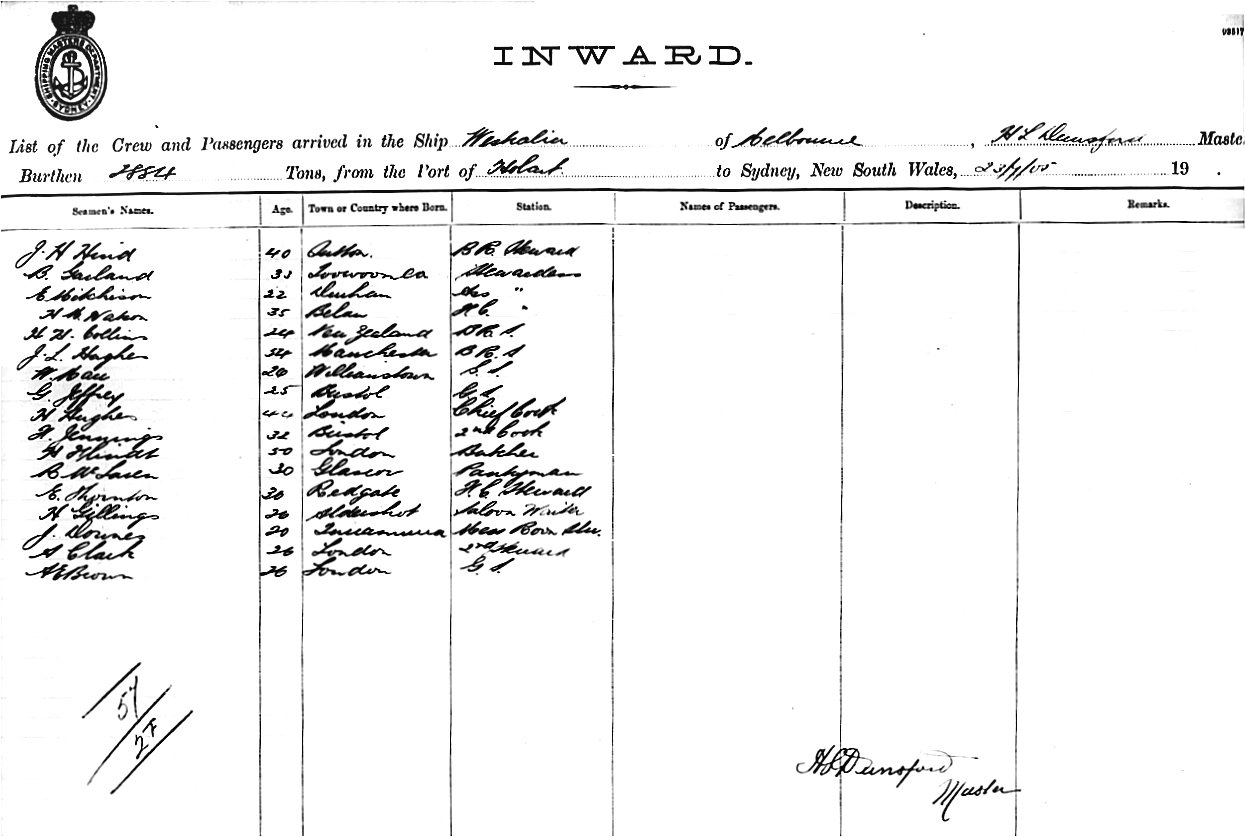 SHIPPING MASTERS DEPARTMENT SYDNEY
INWARD.
List of the Crew and Passengers arrived in the Ship Westralia of Melbourne, H L Dunsford Maste
Burthen 2884 Tons, from the Port of Hobart to Sydney, New South Wales, 23/7/05 19 .
Seamen's Names. Age. Town or Country where Born. Station. Names of Passengers. Description. Remarks.
J. H Hind 40 B R Steward
B. Garland 33 Toowoomba Stewardess
E Hitchison 22 Durham Ass "
H Watson 35 F.C. "
H. H. Collins 24 New Zealand B R. S.
J. L. Hughes 34 Manchester B R. S
W. 26 Williamstown S. S.
G. Jeffrey 25 Bristol G S.
H Hughes 44 London Chief Cook
Jennings 32 Bristol 2nd Cook
H 50 London Butcher
B McLaren 30 Glascow Pantryman
E. Thornton 30 Redgate F. C. Steward
H Gillings 26 Aldershot Saloon Waiter
J. Downes 20 Mess Room Stw.
A Clark 26 London 2nd Steward
A E Brown 26 London G S.
57
2F
H L Dunsford
Master